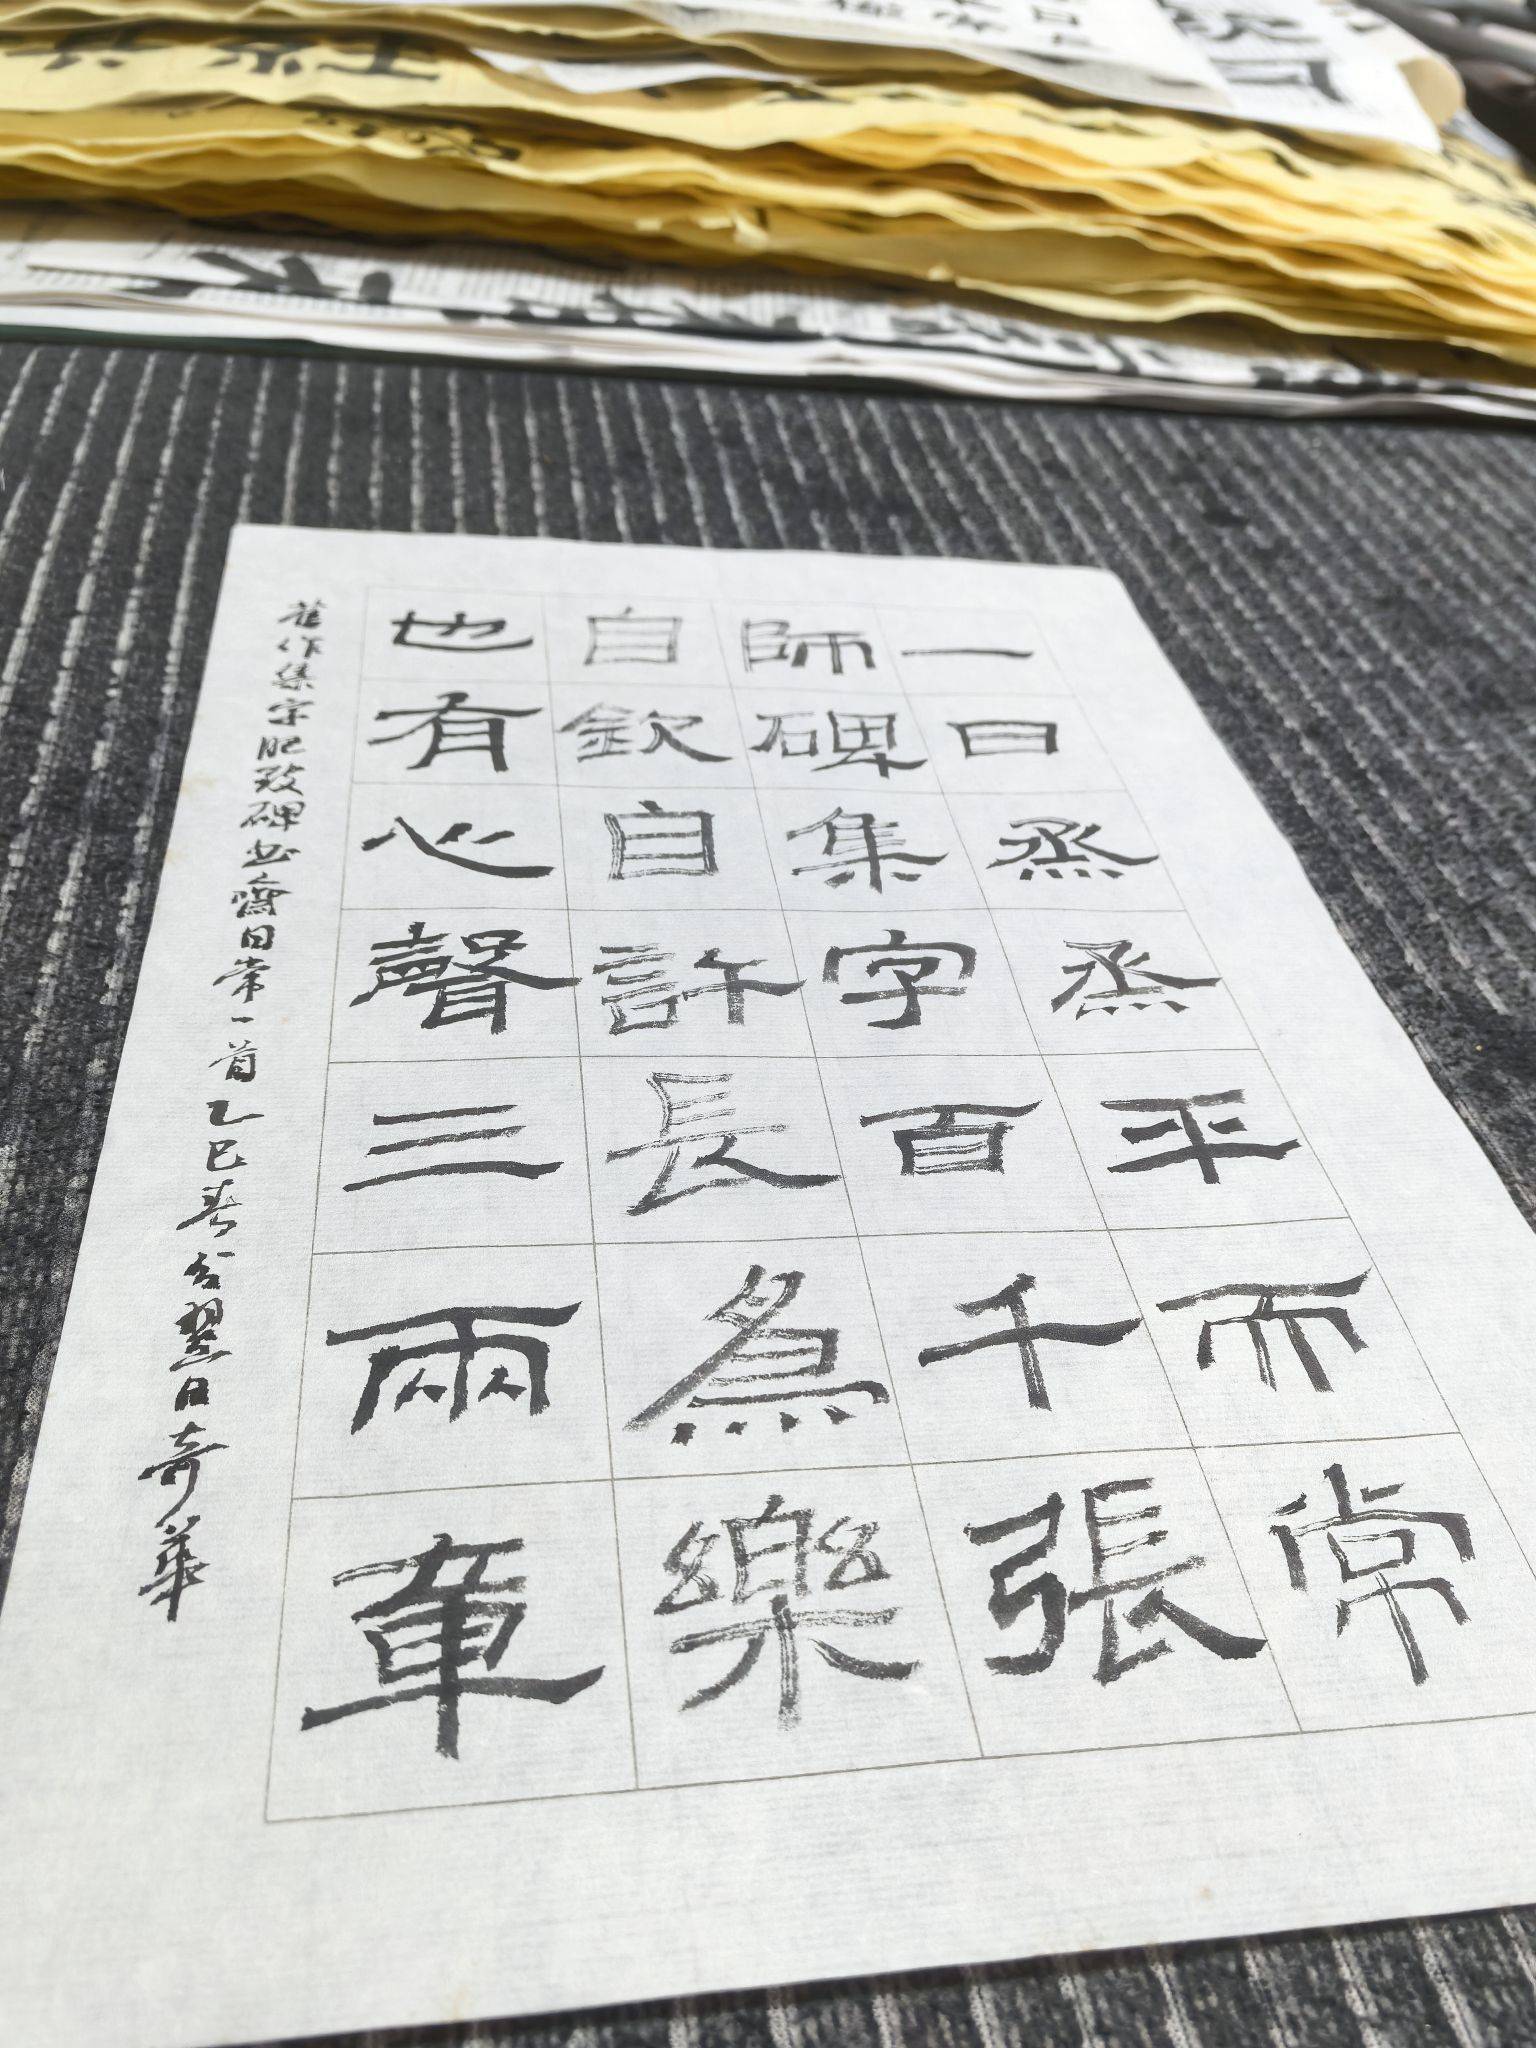 一日烝烝平而常
師碑集字百千張
自欽自許長為樂
也有心聲三兩章
舊作集字肥致碑書齋日常一首乙巳春分翌日奇華